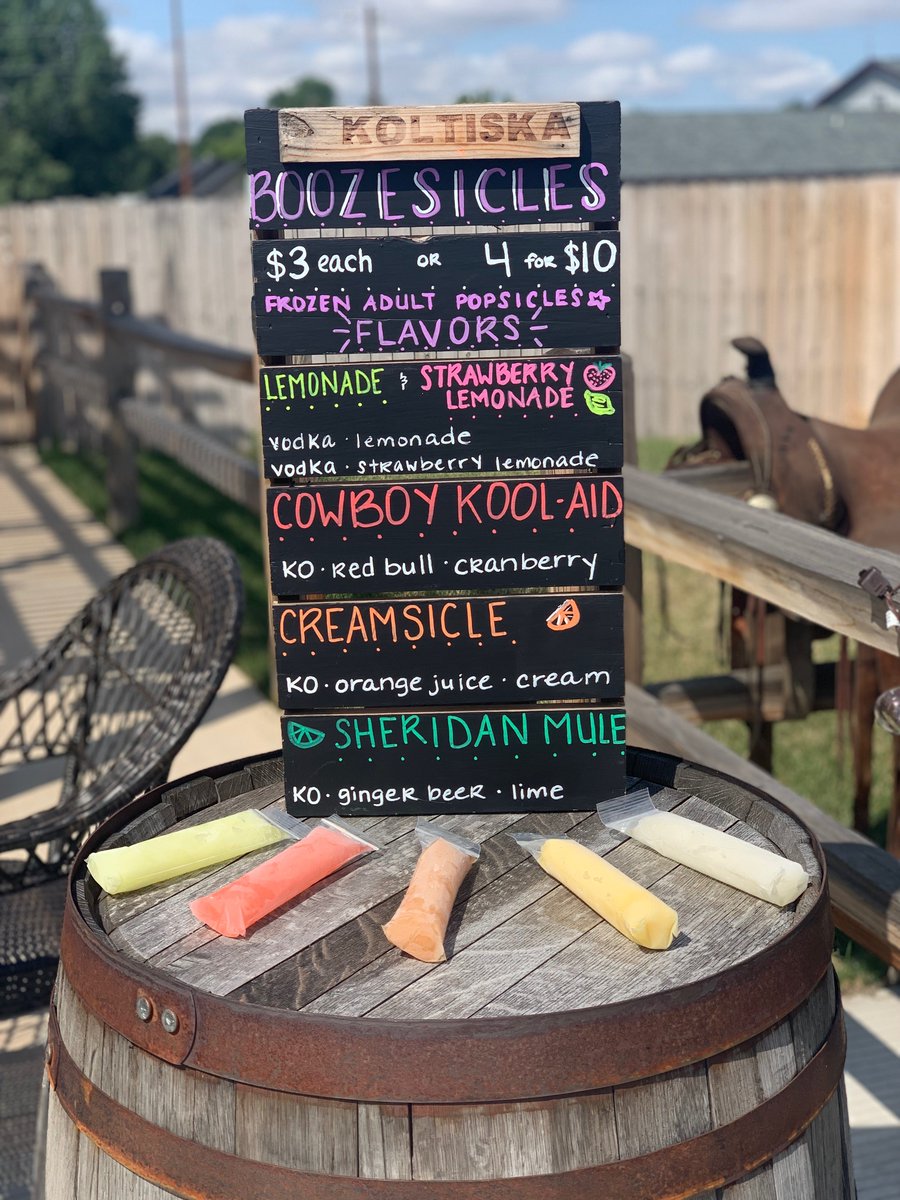 KOLTISKA
BOOZESICLES
$3 each OR 4 FOR $10
FROZEN ADULT POPSICLES
FLAVORS
LEMONADE & STRAWBERRY
LEMONADE
vodka · lemonade
vodka · strawberry lemonade
COWBOY KOOL-AID
KO · Red bull · cranberry
CREAMSICLE
KO · orange juice · cream
SHERIDAN MULE
KO · ginger beer · lime